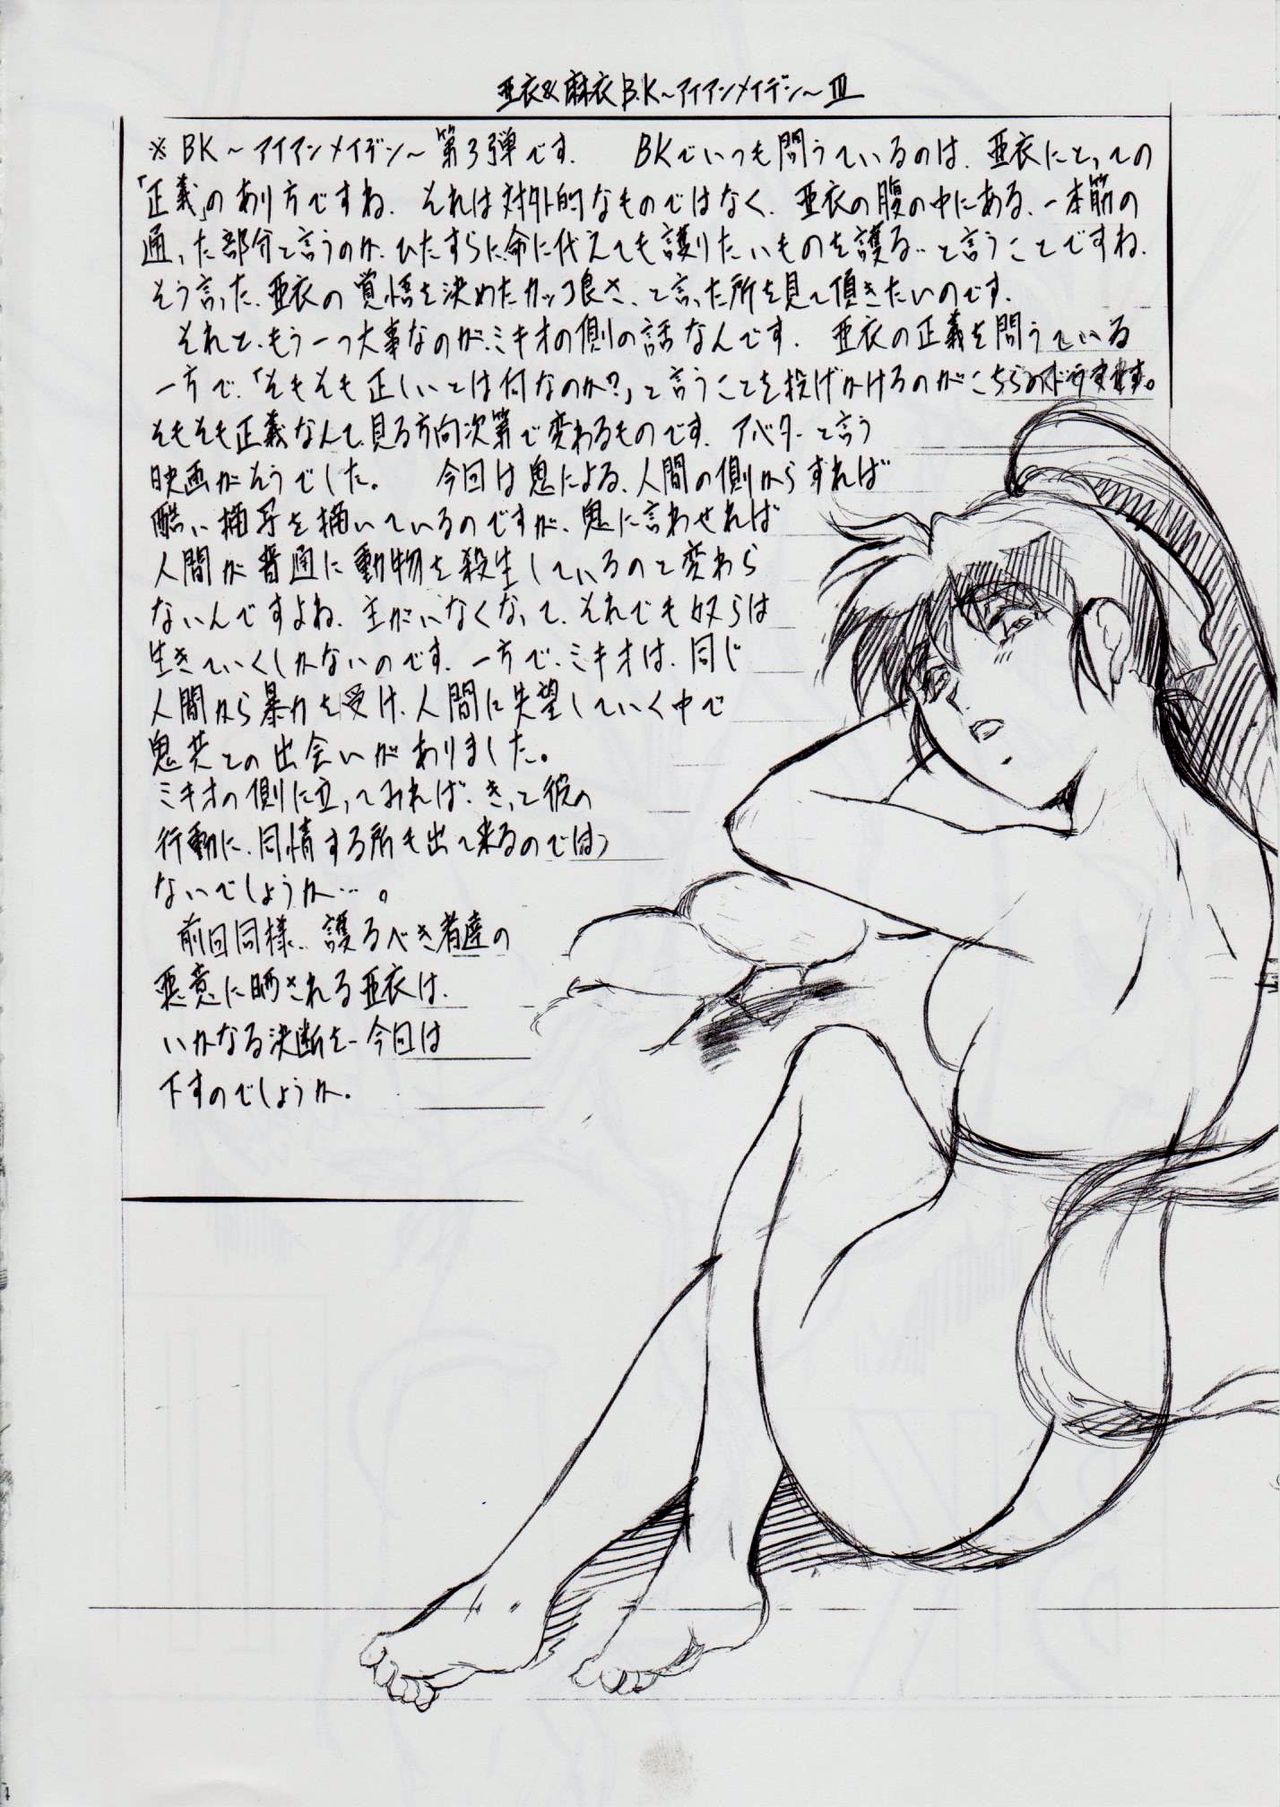 亜衣&麻衣B.K～アイアンメイデン～Ⅲ
※BK～アイアンメイデン～第3弾です. BKでいつも問うているのは、亜衣にとっての
「正義」のあり方ですね. それは対外的なものではなく、亜衣の腹の中にある、一本筋の
通った部分と言うのか、ひたすらに命に代えても護りたいものを護る…と言うことですね.
そう言った、亜衣の覚悟を決めたカッコ良さ、と言った所を見て頂きたいのです.
それと、もう一つ大事なのが、ミキオの側の話なんです. 亜衣の正義を問うている
一方で、「そもそも正しいとは何なのか?」と言うことを投げかけるのがこちらの
そもそも正義なんて、見る方向次第で変わるものです. アバターと言う
映画がそうでした。 今回は鬼による、人間の側からすれば
酷い描写を描いているのですが、鬼に言わせれば
人間が普通に動物を殺生しているのと変わら
ないんですよね. 主がいなくなって、それでも奴らは
生きていくしかないのです. 一方で、ミキオは、同じ
人間から暴力を受け、人間に失望していく中で
鬼共との出会いがありました。
ミキオの側に立ってみれば、きっと彼の
行動に、同情する所も出て来るのでは
ないでしょうか…。
前回同様、護るべき者達の
悪意に晒される亜衣は、
いかなる決断を、今回は
下すのでしょうか.
4